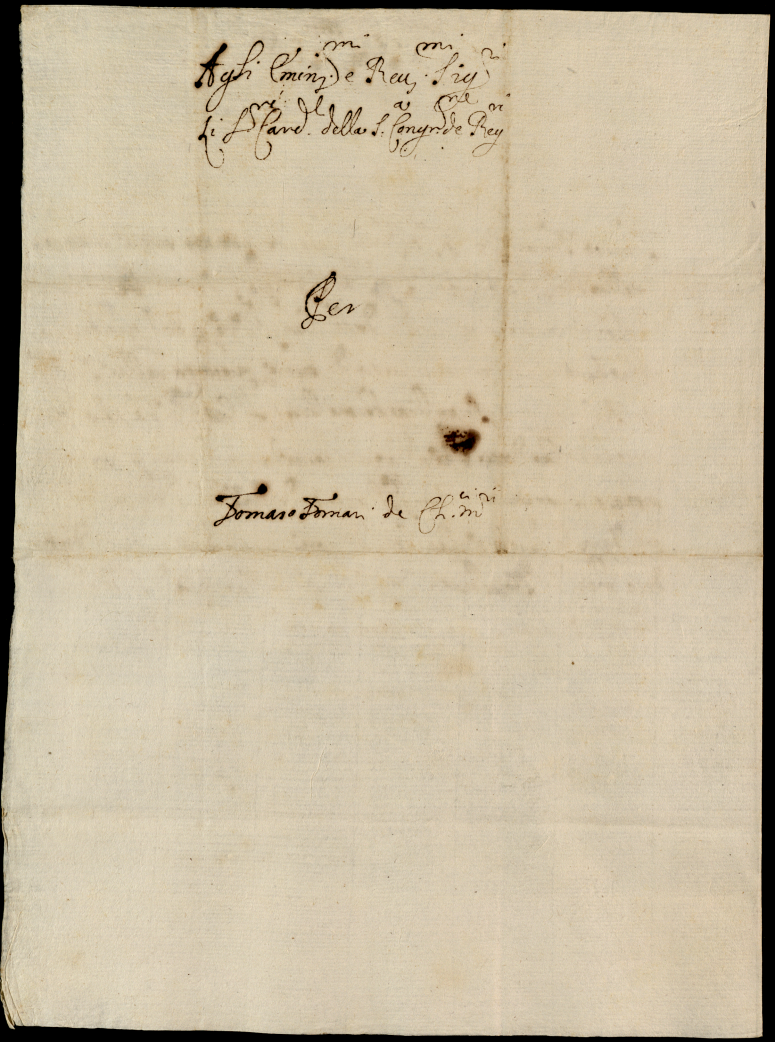 Agli Emin.mi e Reu.mi Sig.ri
Li S.ri Card.l della S.a Congr.ne de Reg.ri
Per
Tomaso Tomasi de Ch.ci m.ri